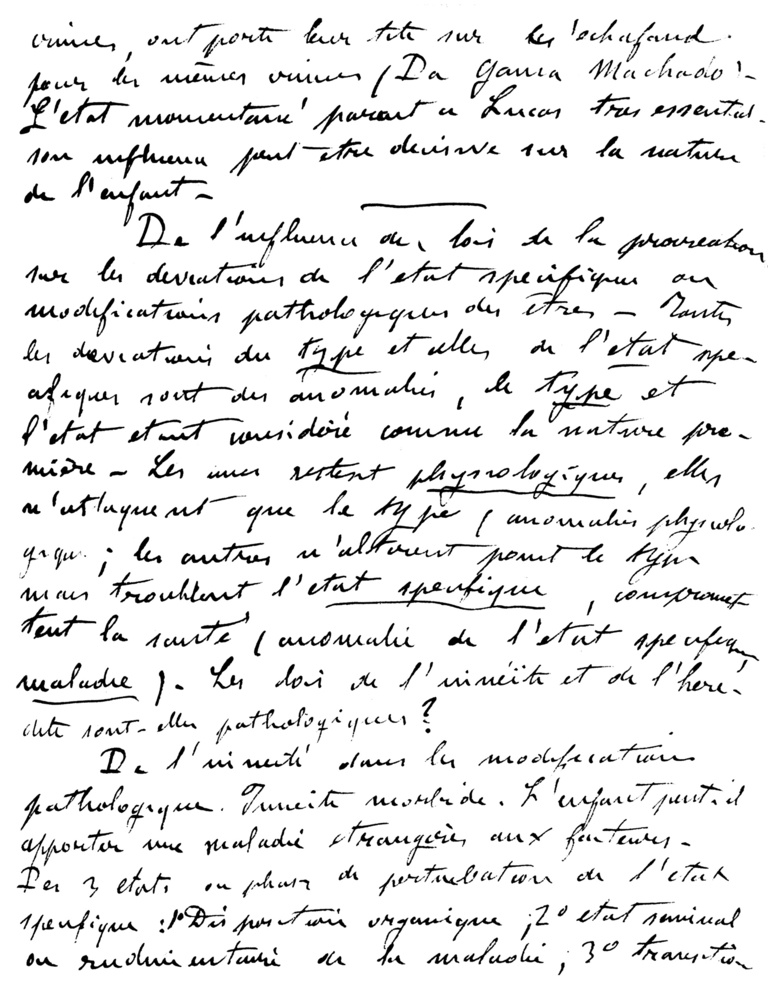 crimes, ont porté leur tête sur les échafaud
pour les mêmes crimes (Da Gama Machado)-
L'état momentané parait a Lucas tres essentiel-
son influence peut-etre decisive sur la nature
de l'enfant-
De l'influence des lois de la procreation
sur les deviations de l'etat specifique ou
modifications pathologiques des êtres - Toutes
les deviations du type et celles de l'etat spe-
cifiques sont des anomalies, le type et
l'etat etant considéré comme la nature pre-
mière - Les unes restent physiologiques, elles
n'attaquent que le type (anomalies physiolo-
giques; les autres n'alterent point le type
mais troublent l'etat specifique, compromet-
tent la santé (anomalie de l'etat specifique
maladie). - Les lois de l'innéité et de l'heré-
dité sont-elles pathologiques?
De l'inneité dans les modifications
pathologique. Inneité morbide. L'enfant peut-il
apporter une maladie etrangères aux facteurs-
Des 3 etats ou phases de perturbation de l'etat
specifique : 1° Disposition organique; 2° etat seminal
ou rudimentaire de la maladie; 3° transition